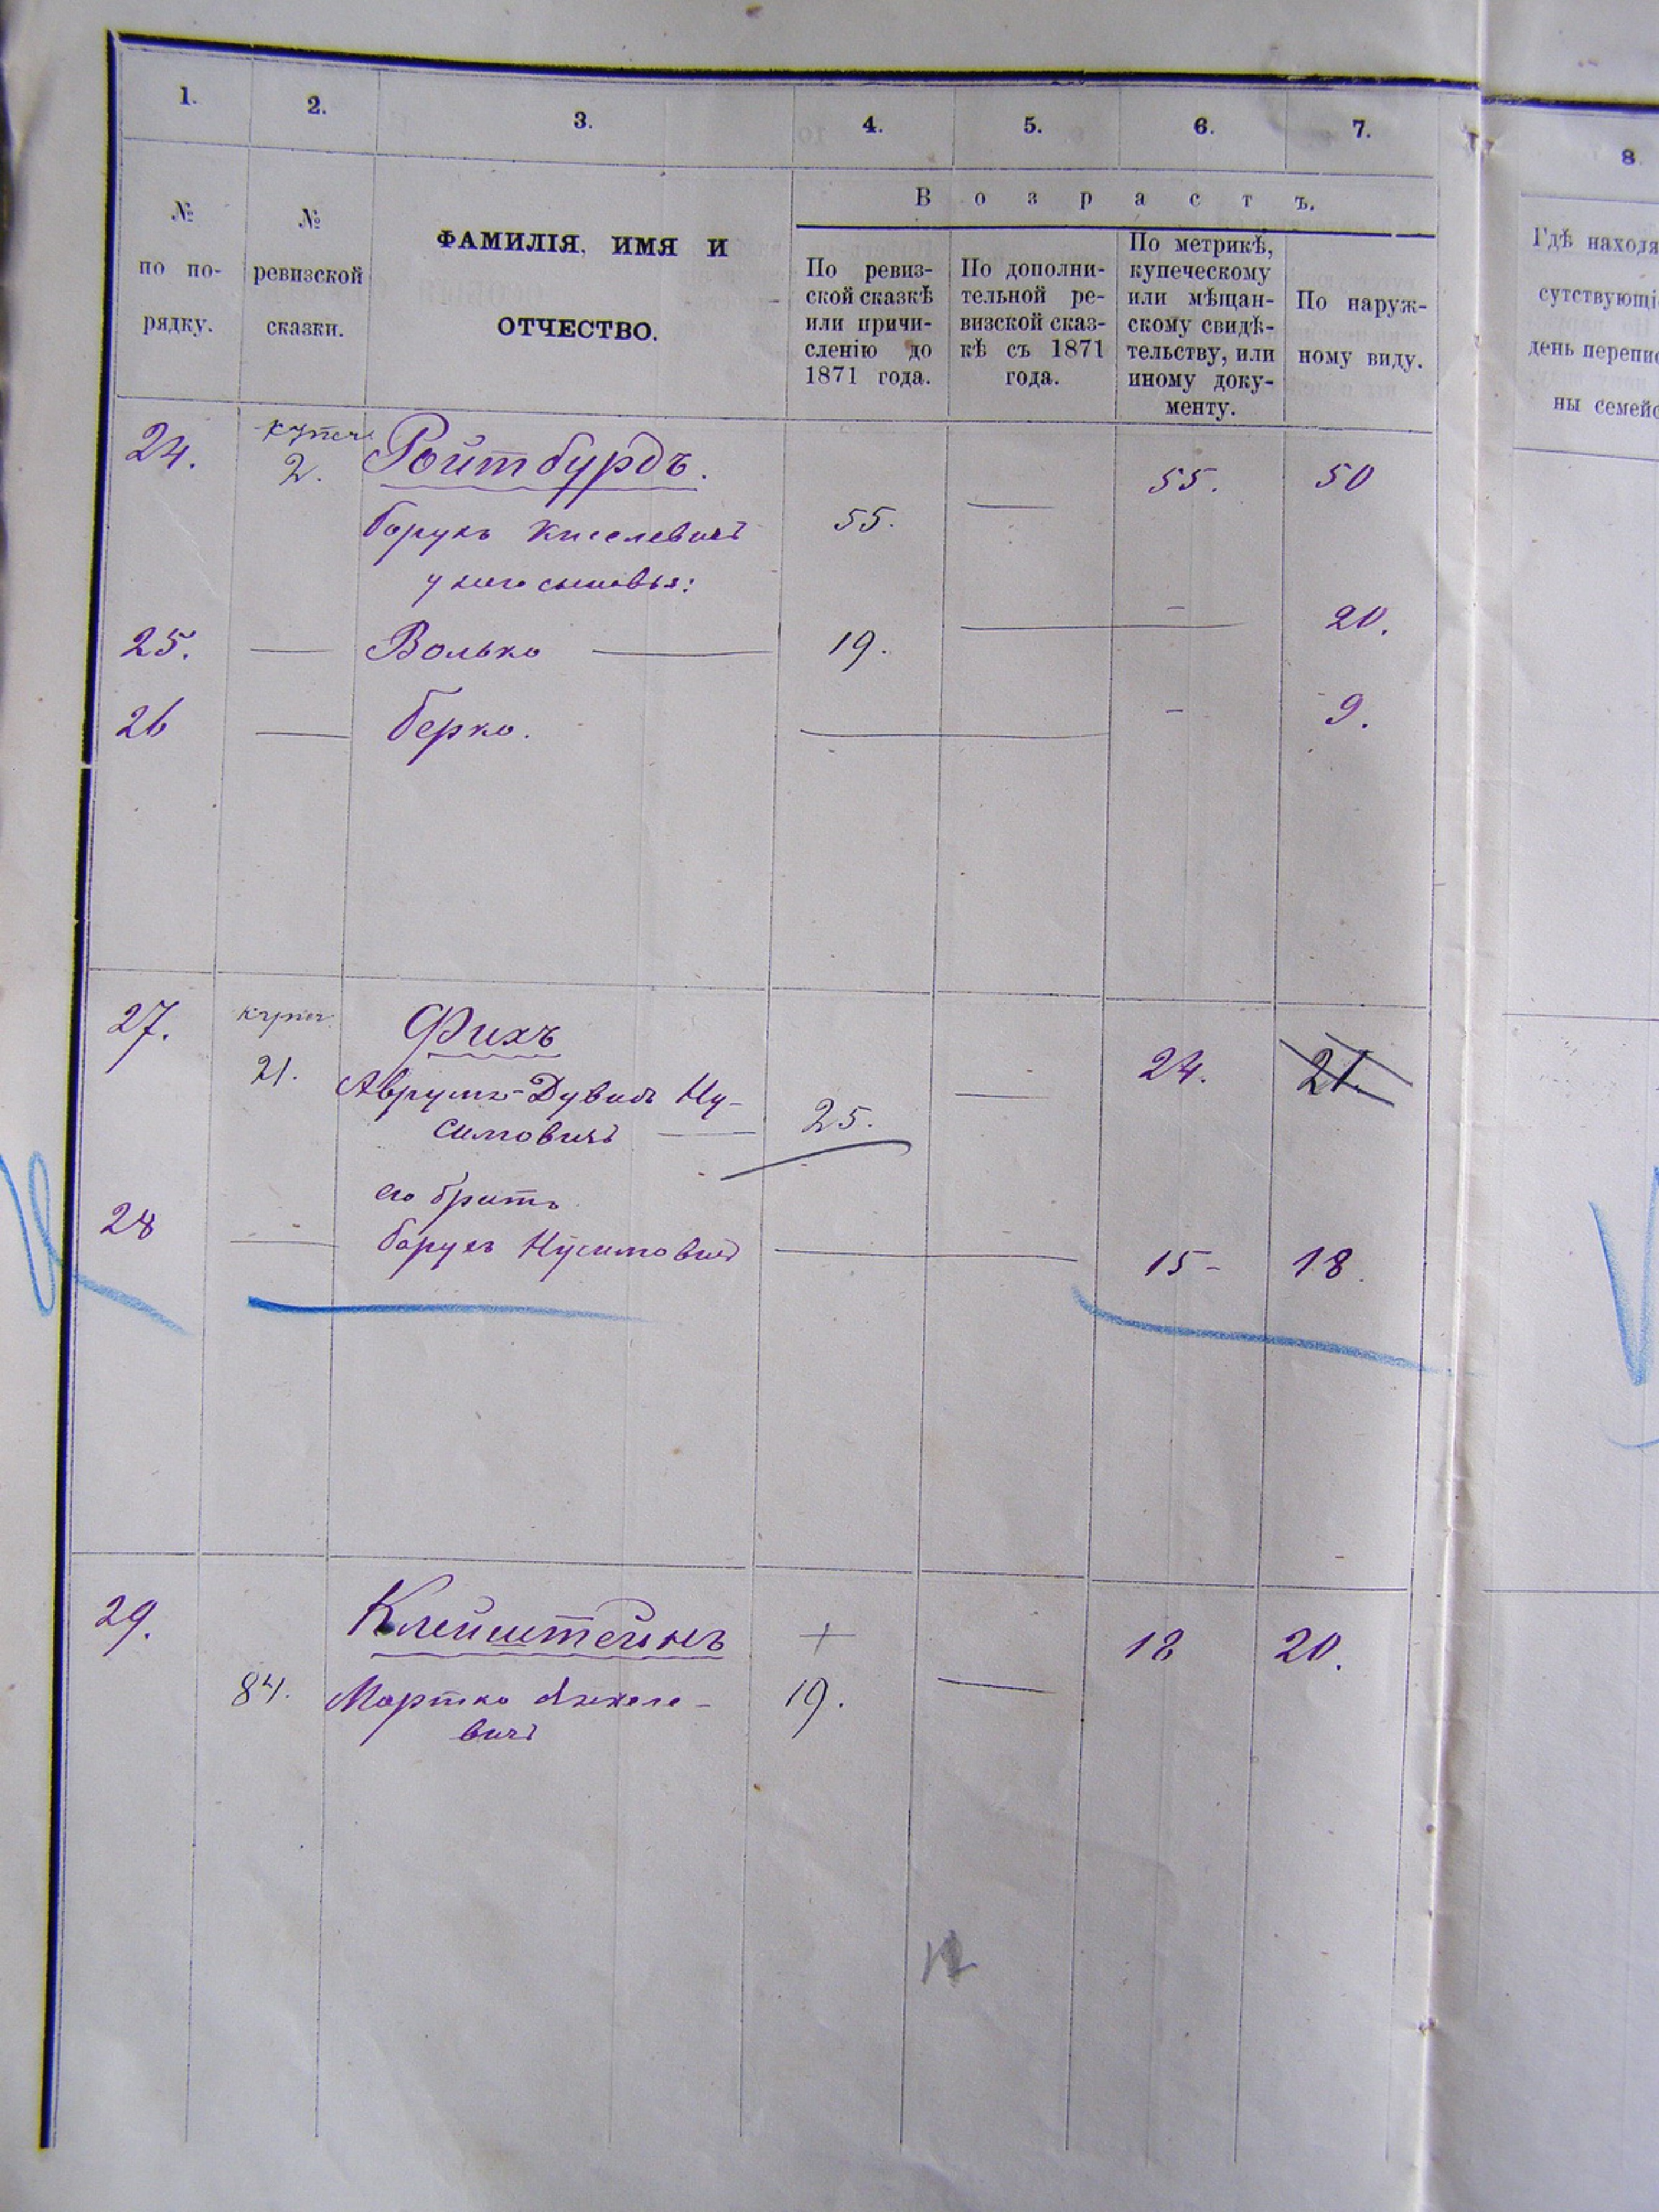 1. 2. 3. 4. 5. 6. 7. 8
В о з р а с т ъ.
№
по по-
рядку.
№
ревизской
сказки.
ФАМИЛІЯ, ИМЯ И
ОТЧЕСТВО.
По ревиз-
ской сказкѣ
или причи-
сленію до
1871 года.
По дополни-
тельной ре-
визской сказ-
кѣ съ 1871
года.
По метрикѣ,
купеческому
или мѣщан-
скому свидѣ-
тельству, или
иному доку-
менту.
По наруж-
ному виду.
Гдѣ находя
сутствующі
день перепис
ны семейс
24. купеч. Ройтбурдъ. 55. 50
2.
Борухъ Киселевичъ 55. —
у него сыновья:
25. — Волько — 19. — 20.
26 — Берко. — - 9.
27. купеч. Фихъ 24. 21.
21. Аврумъ-Дувидъ Ну- —
симовичъ — 25.
его братъ
28 — Борухъ Нусимовичъ — 15- 18.
29. Клейштейнъ + 18 20.
84. Мортко 19. —
вичъ